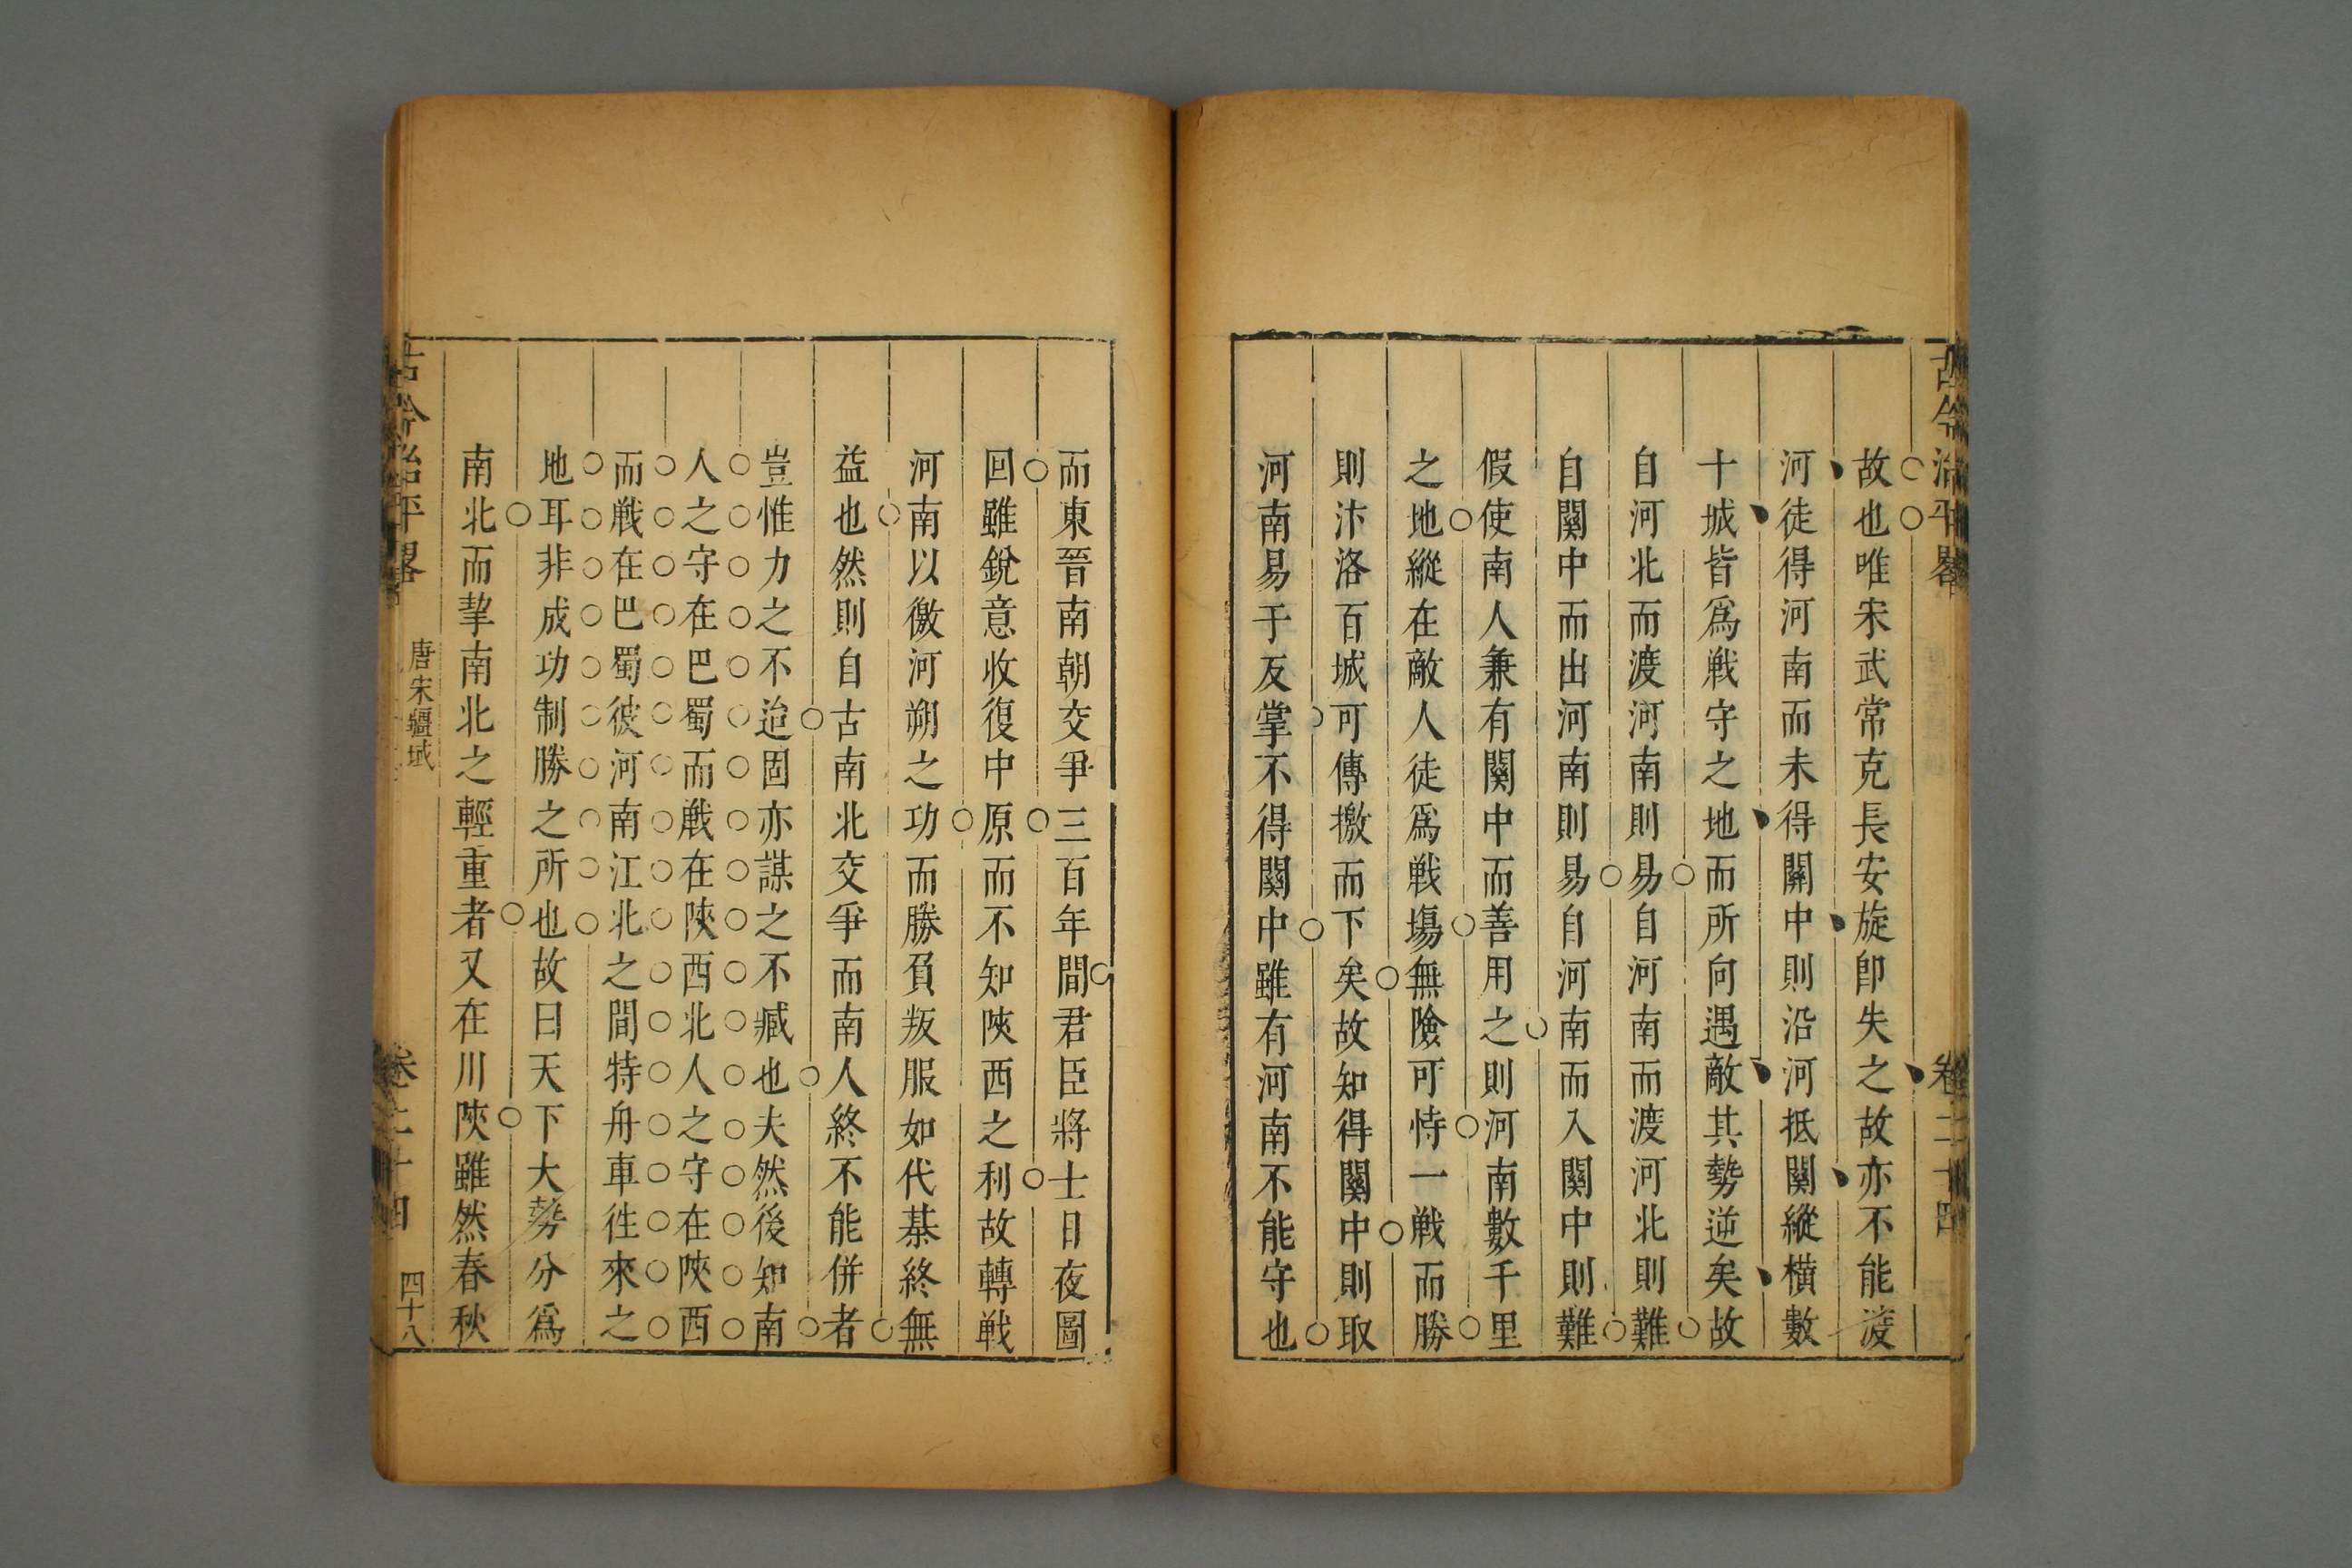 古今治平畧 卷二十四
故也唯宋武常克長安旋卽失之故亦不能渡
河徒得河南而未得關中則沿河抵關縱橫數
十城皆爲戰守之地而所向遇敵其勢逆矣故
自河北而渡河南則易自河南而渡河北則難
自關中而出河南則易自河南而入關中則難
假使南人兼有關中而善用之則河南數千里
之地縱在敵人徒爲戰塲無險可恃一戰而勝
則汴洛百城可傳檄而下矣故知得關中則取
河南易于反掌不得關中雖有河南不能守也
而東晉南朝交爭三百年間君臣將士日夜圖
回雖銳意收復中原而不知陝西之利故轉戰
河南以徼河朔之功而勝負叛服如代棊終無
益也然則自古南北交爭而南人終不能併者
豈惟力之不迨固亦謀之不臧也夫然後知南
人之守在巴蜀而戰在陝西北人之守在陝西
而戰在巴蜀彼河南江北之間特舟車徃來之
地耳非成功制勝之所也故曰天下大勢分爲
南北而挈南北之輕重者又在川陝雖然春秋
古今治平畧 唐宋疆域 卷二十四 四十八